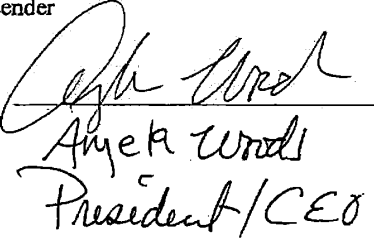 ender
Anjela Woods
President/CEO